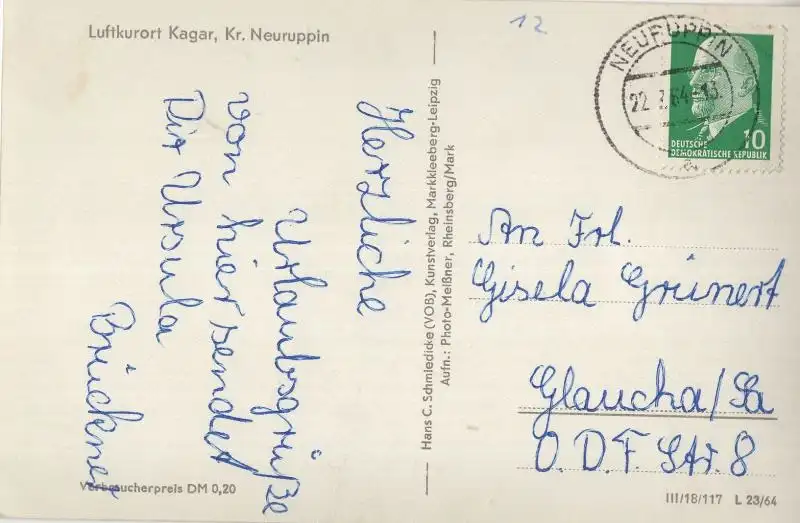 Luftkurort Kagar, Kr. Neuruppin
12
NEURUPPIN
22.7.64-13
a
10
DEUTSCHE
DEMOKRATISCHE REPUBLIK
Herzliche
Urlaubsgrüße
von hier sendet
Dir Ursula
Brückner
Hans C. Schmiedicke (VOB), Kunstverlag, Markkleeberg-Leipzig
Aufn.: Photo-Meißner, Rheinsberg/Mark
An Frl.
Gisela Grünert
Glaucha/Sa
O.D.F. Str. 8
Verbraucherpreis DM 0,20
III/18/117 L 23/64